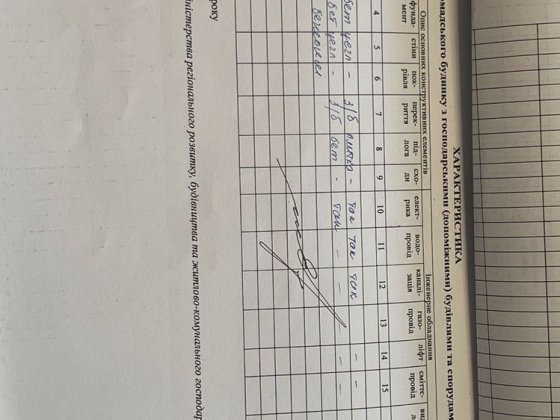 ХАРАКТЕРИСТИКА
омадського будинку з господарськими (допоміжними) будівлями та споруда
Опис основних конструктивних елементів
Інженерне обладнання
фунда-мент
стіни
пок-рівля
перек-риття
під-лога
схо-ди
елект-рика
водо-провід
каналі-зація
газо-провід
ліфт
сміттє-провід
4 5 6 7 8 9 10 11 12 13 14 15
бет цегл – з/б плитка – так так так – –
бет цегл – з/б бет – так – – – –
року
ністерства регіонального розвитку, будівництва та житлово-комунального господар